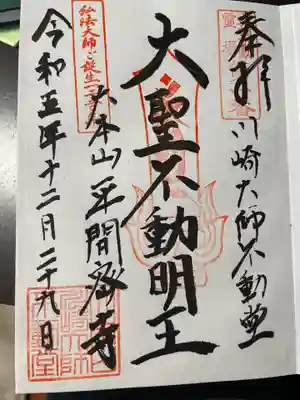 奉拝
川崎大師不動堂
大聖不動明王
大本山平間寺
弘法大師ご誕生
令和五年十二月二十九日